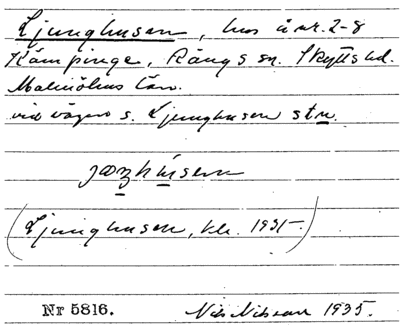 Ljunghusen, hus å nr. 2-8
Kämpinge, Rängs sn. Skytts hd.
Malmöhus län.
vid vägen s. Ljunghusen stn.
(Ljunghusen, kle. 1935-)
Nr 5816. Nils Nilsson 1935.